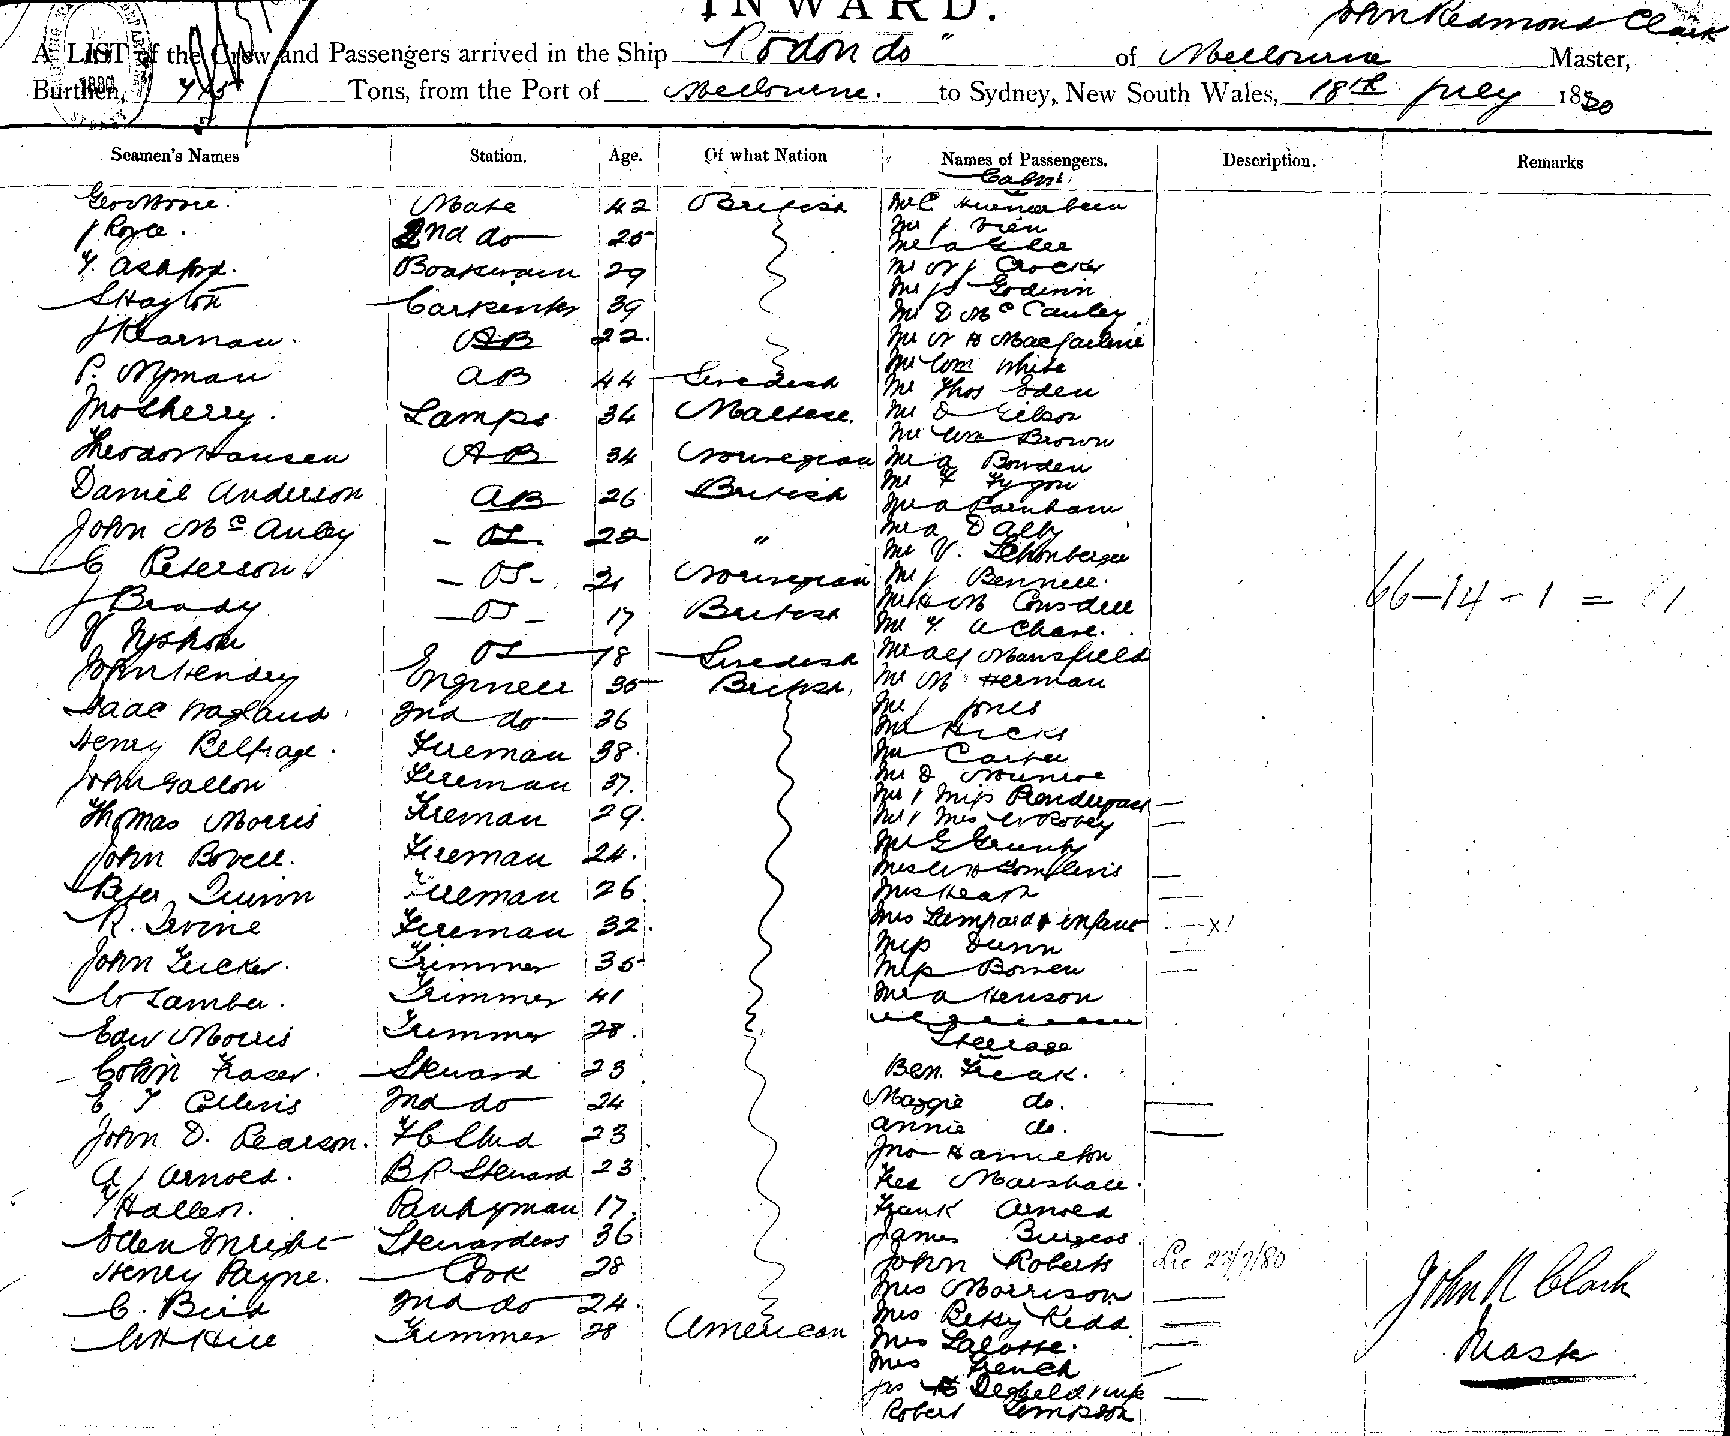 INWARD.
John Redmond Clark
A LIST of the Crew and Passengers arrived in the Ship "Rodondo" of Melbourne Master,
Burthen, Tons, from the Port of Melbourne. to Sydney, New South Wales, 18th July 1880
Seamen's Names Station. Age. Of what Nation Names of Passengers. Description. Remarks
Cabin.
Mate 42 British
J Royce. 2nd do 25 Mr J.
Mr A
T. Ashford. Boatswain 29 Mr W J Crocker
Mr Jas Godwin
S Hayton Carpenter 39 Mr D McCauley
J Kearnau. AB 22. Mr N H Macfarlane
Mr Wm White
P. Nyman AB 44 Swedish Mr Thos Eden
Jno Sherry. Lamps 34 Maltese. Mr D Gibson
Mr Wm Brown
Theodor Hansen AB 34 Norwegian Mr A Bowden
Mr F
Daniel Anderson AB 26 British Mr A Parnham
John McAuley - OS - 22 " Mr A Dalby
Mr V. Schonberger
C Peterson. - OS - 21 Norwegian Mr J Bennett.
J Brady - OS - 17 British Mr H M Consdell
Mr T A Chase.
V OS 18 Swedish Mr Alf Mansfield
John Hendry Engineer 35 British. Mr M Herman
Isaac 2nd do 36 Mr J Jones
Mr Hicks
Henry Belfrage. Fireman 38. Mr Carter
John Gallon Fireman 37. Mr D Munroe
Mr & Miss Pendergast
Thomas Morris Fireman 29. Mr & Mrs W Robey
John Bovell. Fireman 24. Mr G
Mrs W H Tomplins
Peter Quinn Fireman 26 Mrs Heath
R. Irvine Fireman 32. Mrs Lampard & infant — x1
Miss Dunn
John Tucker. Trimmer 35 Miss Bowen
W Lambe. Trimmer 41 Mr A Henson
Edw Morris Trimmer 28. Steerage
Colin Fraser. Steward 23 Ben. Freak.
E T Collins 2nd do 24 Maggie do.
John D. Pearson. F C Stwd 23 Annie do.
Jno Hamilton
A J Arnold. B P Steward 23 Marshall.
T Haller. Pantryman 17. Frank Arnold
Ellen Stewardess 36 James Burgess
Henry Payne. Cook 28 John Roberts 22/7/80
Mrs Morrison
C. Bird 2nd do 24. Mrs Betsy Kidd
W H Hill Trimmer 28 American Mrs Lalotte.
Mrs French
Robert Simpson
66-14-1 = 81
John R Clark
Mastr